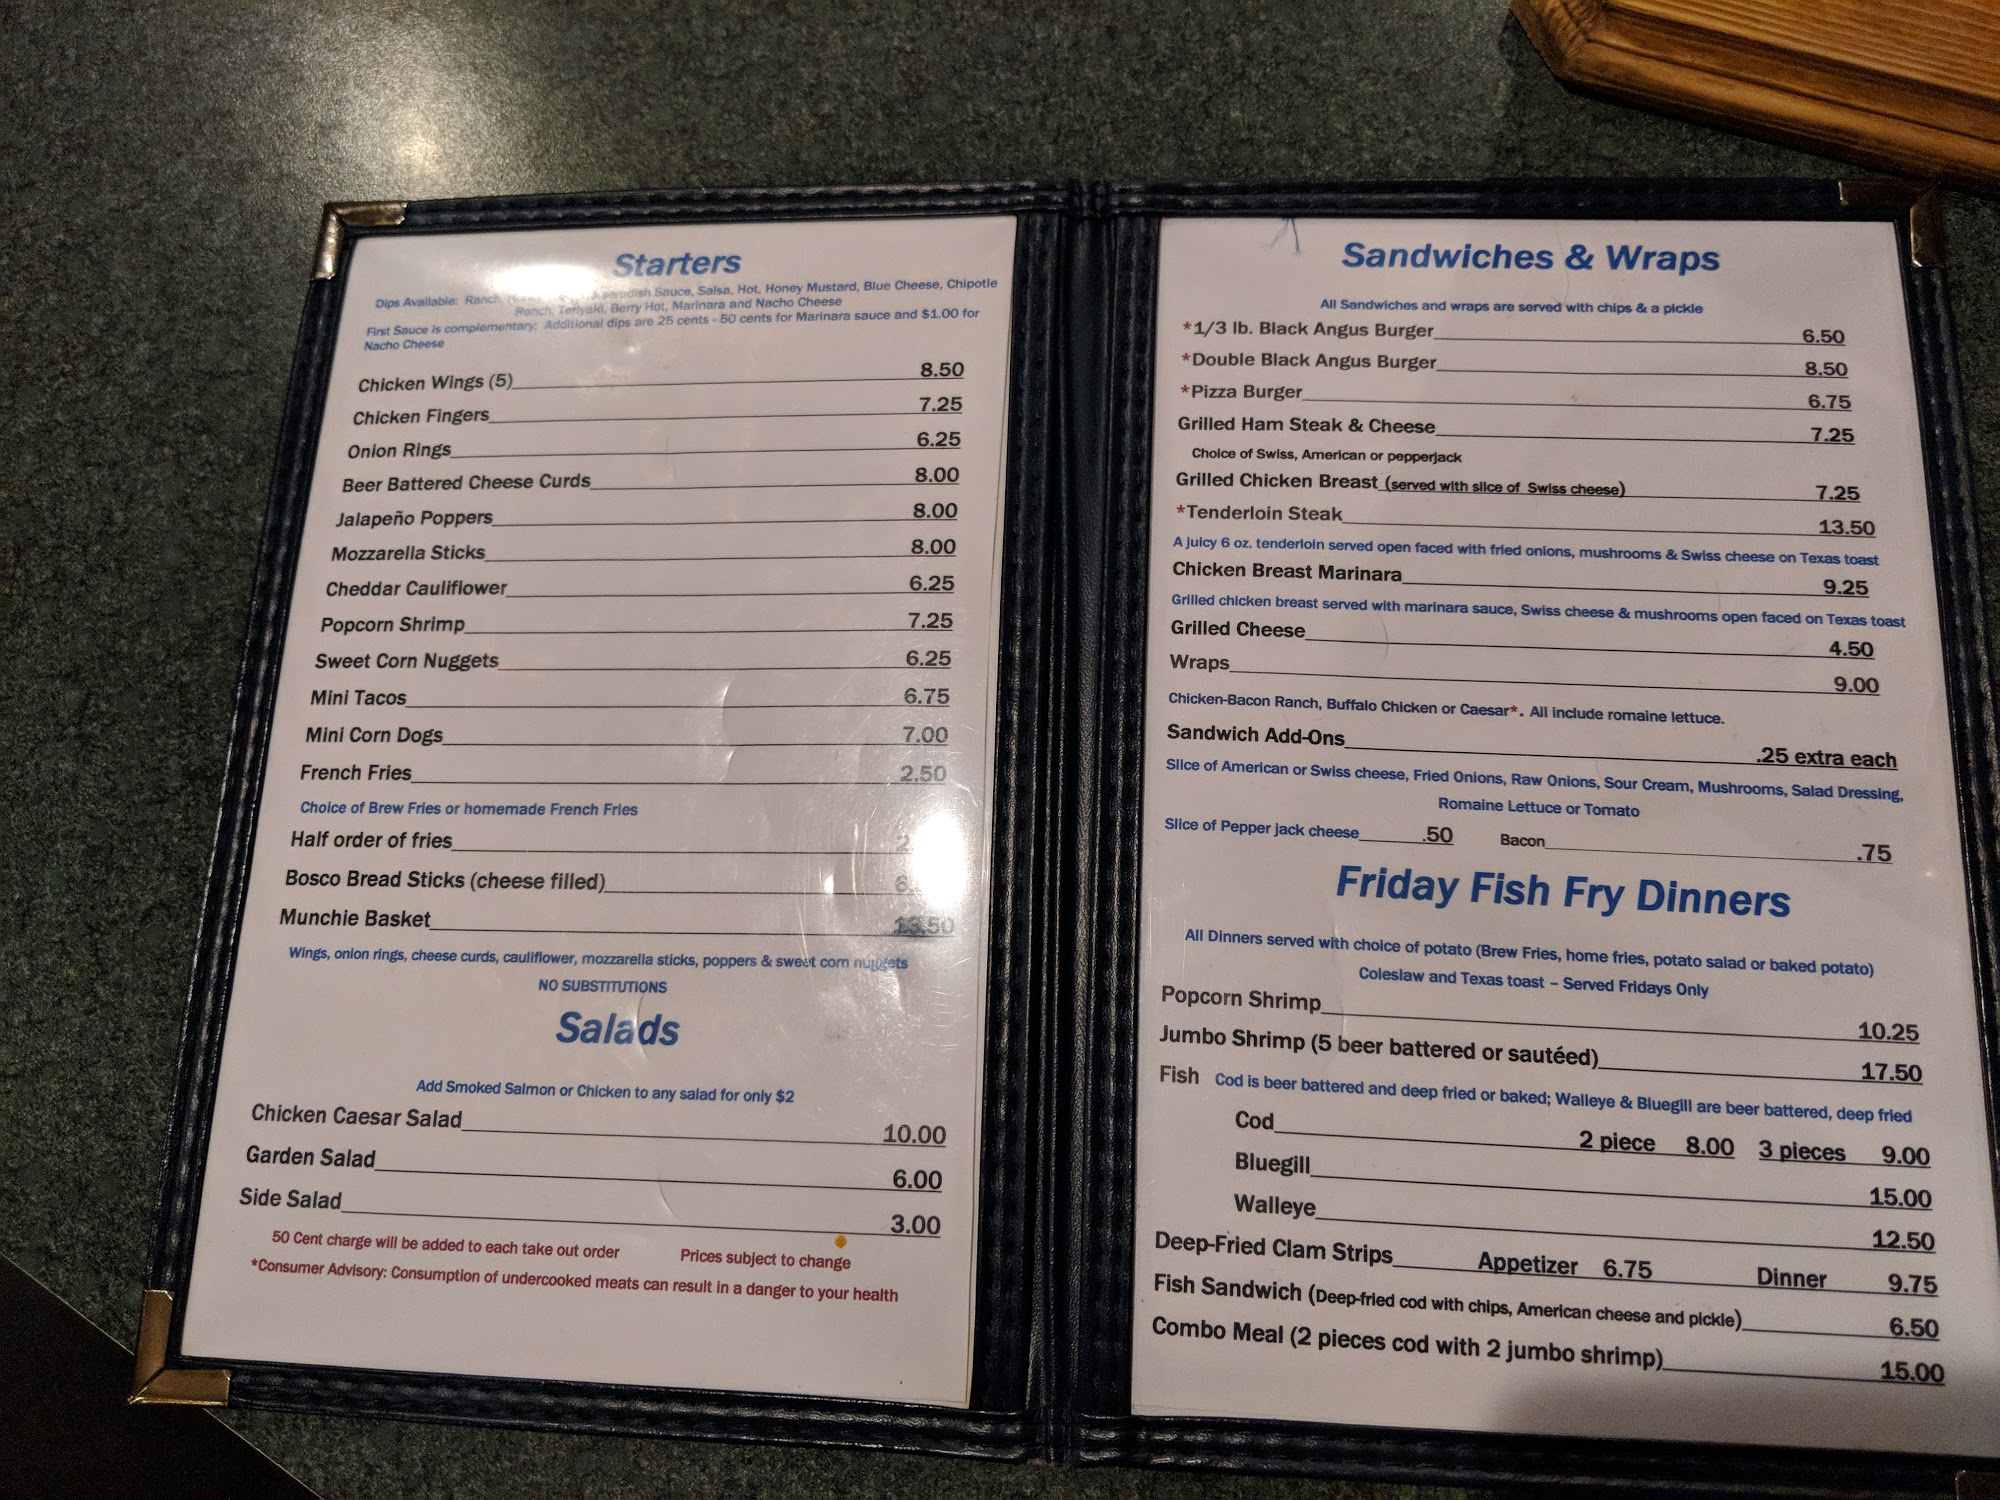 Starters
Dips Available: Ranch, Sauce, Salsa, Hot, Honey Mustard, Blue Cheese, Chipotle
Ranch, Teriyaki, Berry Hot, Marinara and Nacho Cheese
First Sauce is complementary: Additional dips are 25 cents - 50 cents for Marinara sauce and $1.00 for
Nacho Cheese
Chicken Wings (5) 8.50
Chicken Fingers 7.25
Onion Rings 6.25
Beer Battered Cheese Curds 8.00
Jalapeño Poppers 8.00
Mozzarella Sticks 8.00
Cheddar Cauliflower 6.25
Popcorn Shrimp 7.25
Sweet Corn Nuggets 6.25
Mini Tacos 6.75
Mini Corn Dogs 7.00
French Fries 2.50
Choice of Brew Fries or homemade French Fries
Half order of fries
Bosco Bread Sticks (cheese filled)
Munchie Basket 13.50
Wings, onion rings, cheese curds, cauliflower, mozzarella sticks, poppers & sweet corn nuggets
NO SUBSTITUTIONS
Salads
Add Smoked Salmon or Chicken to any salad for only $2
Chicken Caesar Salad 10.00
Garden Salad 6.00
Side Salad 3.00
50 Cent charge will be added to each take out order Prices subject to change
*Consumer Advisory: Consumption of undercooked meats can result in a danger to your health
Sandwiches & Wraps
All Sandwiches and wraps are served with chips & a pickle
*1/3 lb. Black Angus Burger 6.50
*Double Black Angus Burger 8.50
*Pizza Burger 6.75
Grilled Ham Steak & Cheese 7.25
Choice of Swiss, American or pepperjack
Grilled Chicken Breast (served with slice of Swiss cheese) 7.25
*Tenderloin Steak 13.50
A juicy 6 oz. tenderloin served open faced with fried onions, mushrooms & Swiss cheese on Texas toast
Chicken Breast Marinara 9.25
Grilled chicken breast served with marinara sauce, Swiss cheese & mushrooms open faced on Texas toast
Grilled Cheese 4.50
Wraps 9.00
Chicken-Bacon Ranch, Buffalo Chicken or Caesar*. All include romaine lettuce.
Sandwich Add-Ons .25 extra each
Slice of American or Swiss cheese, Fried Onions, Raw Onions, Sour Cream, Mushrooms, Salad Dressing,
Romaine Lettuce or Tomato
Slice of Pepper jack cheese .50 Bacon .75
Friday Fish Fry Dinners
All Dinners served with choice of potato (Brew Fries, home fries, potato salad or baked potato)
Coleslaw and Texas toast – Served Fridays Only
Popcorn Shrimp 10.25
Jumbo Shrimp (5 beer battered or sautéed) 17.50
Fish Cod is beer battered and deep fried or baked; Walleye & Bluegill are beer battered, deep fried
Cod 2 piece 8.00 3 pieces 9.00
Bluegill 15.00
Walleye 12.50
Deep-Fried Clam Strips Appetizer 6.75 Dinner 9.75
Fish Sandwich (Deep-fried cod with chips, American cheese and pickle) 6.50
Combo Meal (2 pieces cod with 2 jumbo shrimp) 15.00